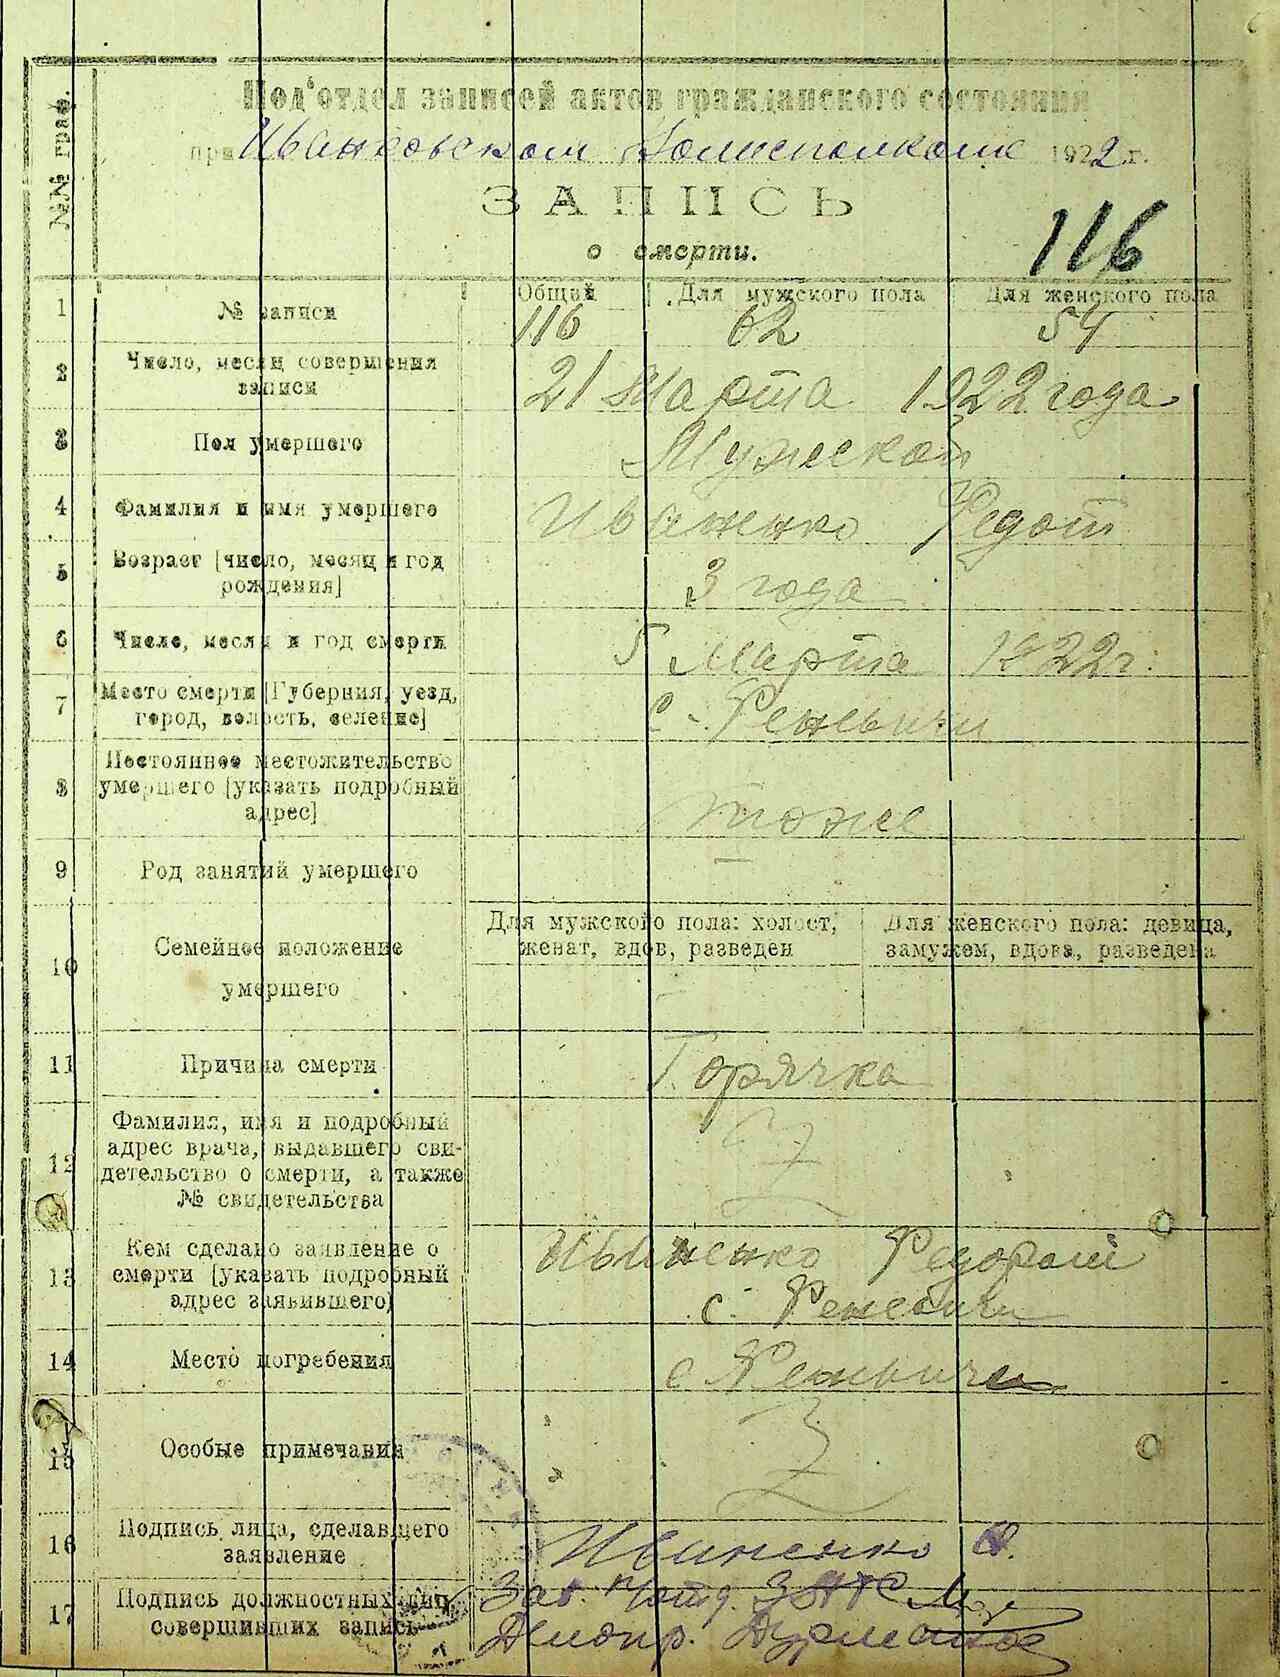 №№ граф.
Под'отдел записей актов гражданского состояния
при Иваньковском Волисполкоме 1922 г.
ЗАПИСЬ
о смерти.
116
Общий Для мужского пола Для женского пола
1 № записи 116 62 54
2 Число, месяц совершения
записи 21 Марта 1922 года
3 Пол умершего Мужеской
4 Фамилия и имя умершего Иваненко Федот
5 Возраст [число, месяц и год
рождения] 3 года
6 Число, месяц и год смерти 5 Марта 1922 г.
7 Место смерти [Губерния, уезд,
город, волость, селение] с. Реневичи
8 Постоянное местожительство
умершего [указать подробный
адрес] тоже
9 Род занятий умершего —
10 Семейное положение
умершего
Для мужского пола: холост,
женат, вдов, разведен
Для женского пола: девица,
замужем, вдова, разведена
11 Причина смерти Горячка
12 Фамилия, имя и подробный
адрес врача, выдавшего сви-
детельство о смерти, а также
№ свидетельства
13 Кем сделано заявление о
смерти [указать подробный
адрес заявившего] Иваненко Федором
с. Реневичи
14 Место погребения с Реневичи
15 Особые примечания
16 Подпись лица, сделавшего
заявление Иваненко Ф.
17 Подпись должностных лиц,
совершивших запись Зав. П/отд. ЗАГС
Делопр.